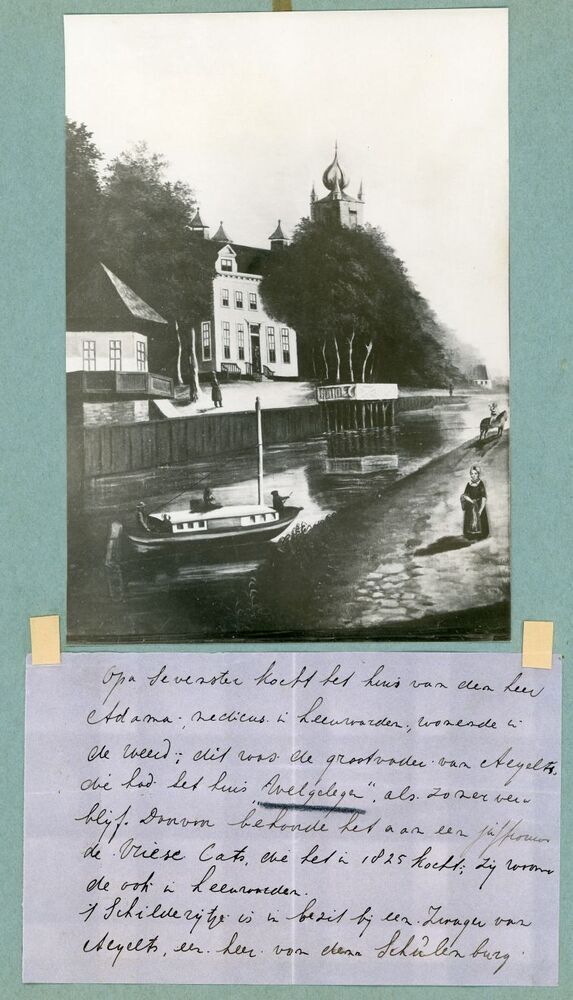 Opa Sevenster kocht het huis van den heer
Adama, medicus in Leeuwarden, wonende in
de Weerd; dit was de grootvader van Aeyelts,
die had het huis "Welgelegen", als zomerver-
blijf. Daarvoor behoorde het aan een juffrouw
de Vriese Cats, die het in 1825 kocht; zij woon-
de ook in Leeuwarden.
't Schilderijtje is in bezit bij een zwager van
Aeyelts, een heer von dem Schülenburg.